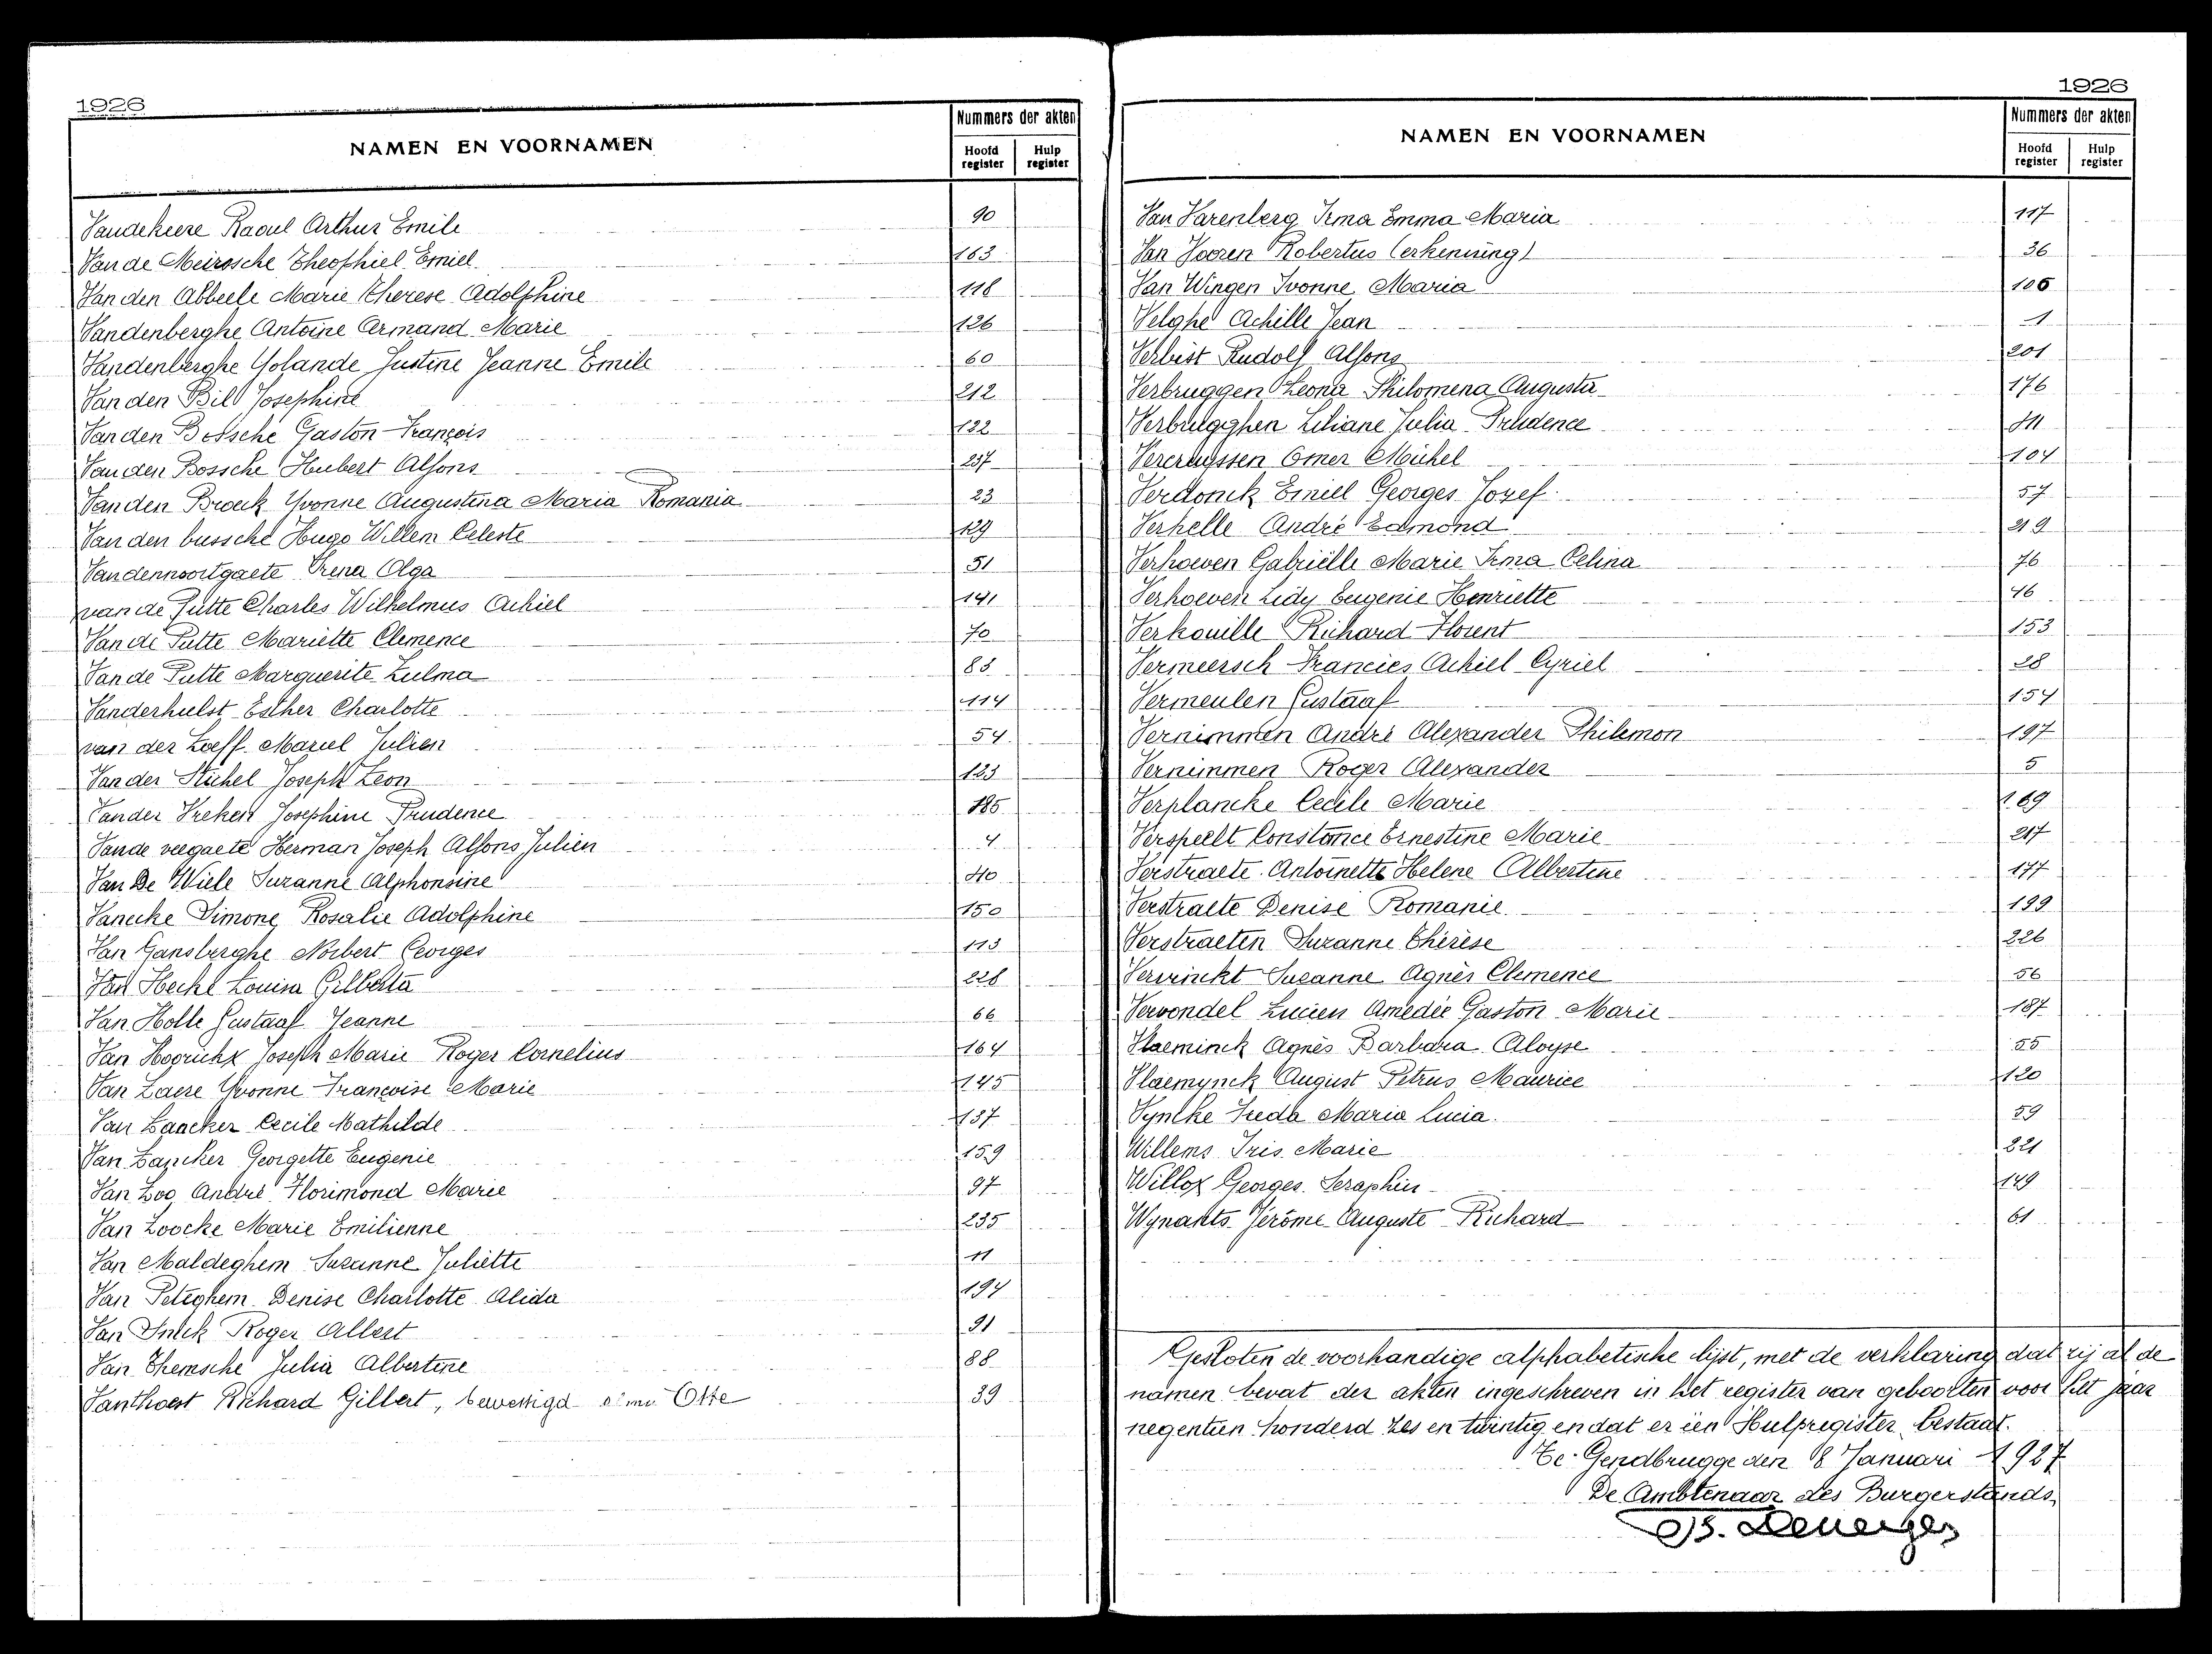 1926
NAMEN EN VOORNAMEN
Nummers der akten
Hoofd register
Hulp register
Vandekeere Raoul Arthur Emile 90
Van de Meirssche Theophiel Emiel 163
Van den Abbeele Marie Therese Adolphine 118
Vandenberghe Antoine Armand Marie 126
Vandenberghe Yolande Justine Jeanne Emile 60
Van den Bil Josephine 212
Van den Bossche Gaston François 122
Van den Bossche Hubert Alfons 237
Van den Broeck Yvonne Augustina Maria Romania 23
Van den bussche Hugo Willem Celeste 129
Vandennoortgaete Irena Olga 51
van de Putte Charles Wilhelmus Achiel 141
Van de Putte Mariette Clemence 70
Van de Putte Marguerite Zulma 83
Vanderhulst Esther Charlotte 114
van der Loeff Marcel Julien 54
Van der Stichel Joseph Leon 123
Vander Vreken Josephine Prudence 185
Vande veegaete Herman Joseph Alfons Julien 4
Van De Wiele Suzanne Alphonsine 40
Vanecke Simone Rosalie Adolphine 150
Van Gansberghe Norbert Georges 113
Van Hecke Louisa Gilberta 228
Van Holle Gustaaf Jeanne 66
Van Hoorickx Joseph Marie Roger Cornelius 164
Van Laere Yvonne Françoise Marie 145
Van Laecker Cecile Mathilde 137
Van Lancker Georgette Eugenie 159
Van Loo André Florimond Marie 97
Van Loocke Marie Emilienne 235
Van Maldeghem Suzanne Juliette 11
Van Peteghem Denise Charlotte Alida 194
Van Snick Roger Albert 91
Van Themsche Julia Albertine 88
Vanthorst Richard Gilbert, bewettigd Otte 39
1926
NAMEN EN VOORNAMEN
Nummers der akten
Hoofd register
Hulp register
Van Varenberg Irma Emma Maria 117
Van Vooren Robertus (erkenning) 36
Van Wingen Ivonne Maria 106
Velghe Achille Jean 1
Verbist Rudolf Alfons 201
Verbruggen Leona Philomena Augusta 176
Verbrugghen Liliane Julia Prudence
Vercruyssen Omer Michel 104
Verdonck Emiel Georges Jozef 57
Verhelle André Edmond 219
Verhoeven Gabriëlle Marie Irma Celina 76
Verhoeven Lidy Eugenie Henriette 46
Verkouille Richard Florent 153
Vermeersch Francies Achiel Cyriel 28
Vermeulen Gustaaf 154
Vernimmen André Alexander Philemon 197
Vernimmen Roger Alexander 5
Verplancke Cecile Marie 169
Verspeelt Constance Ernestine Marie 217
Verstraete Antoinette Helene Albertine 177
Verstraete Denise Romanie 199
Verstraeten Suzanne Thérèse 226
Vervinckt Suzanne Agnès Clemence 56
Vervondel Lucien Amedée Gaston Marie 187
Vlaeminck Agnès Barbara Aloyse 25
Vlaemynck August Petrus Maurice 120
Vyncke Freda Maria Lucia 59
Willems Iris Marie 221
Willox Georges Seraphin 149
Wynants Jérôme Auguste Richard 61
Gesloten de voorhandige alphabetische lijst, met de verklaring dat zij al de
namen bevat der akten ingeschreven in het register van geboorten voor het jaar
negentien honderd zes en twintig en dat er één Hulpregister bestaat.
Te Gendbrugge den 8 Januari 1927
De Ambtenaar des Burgerstands,